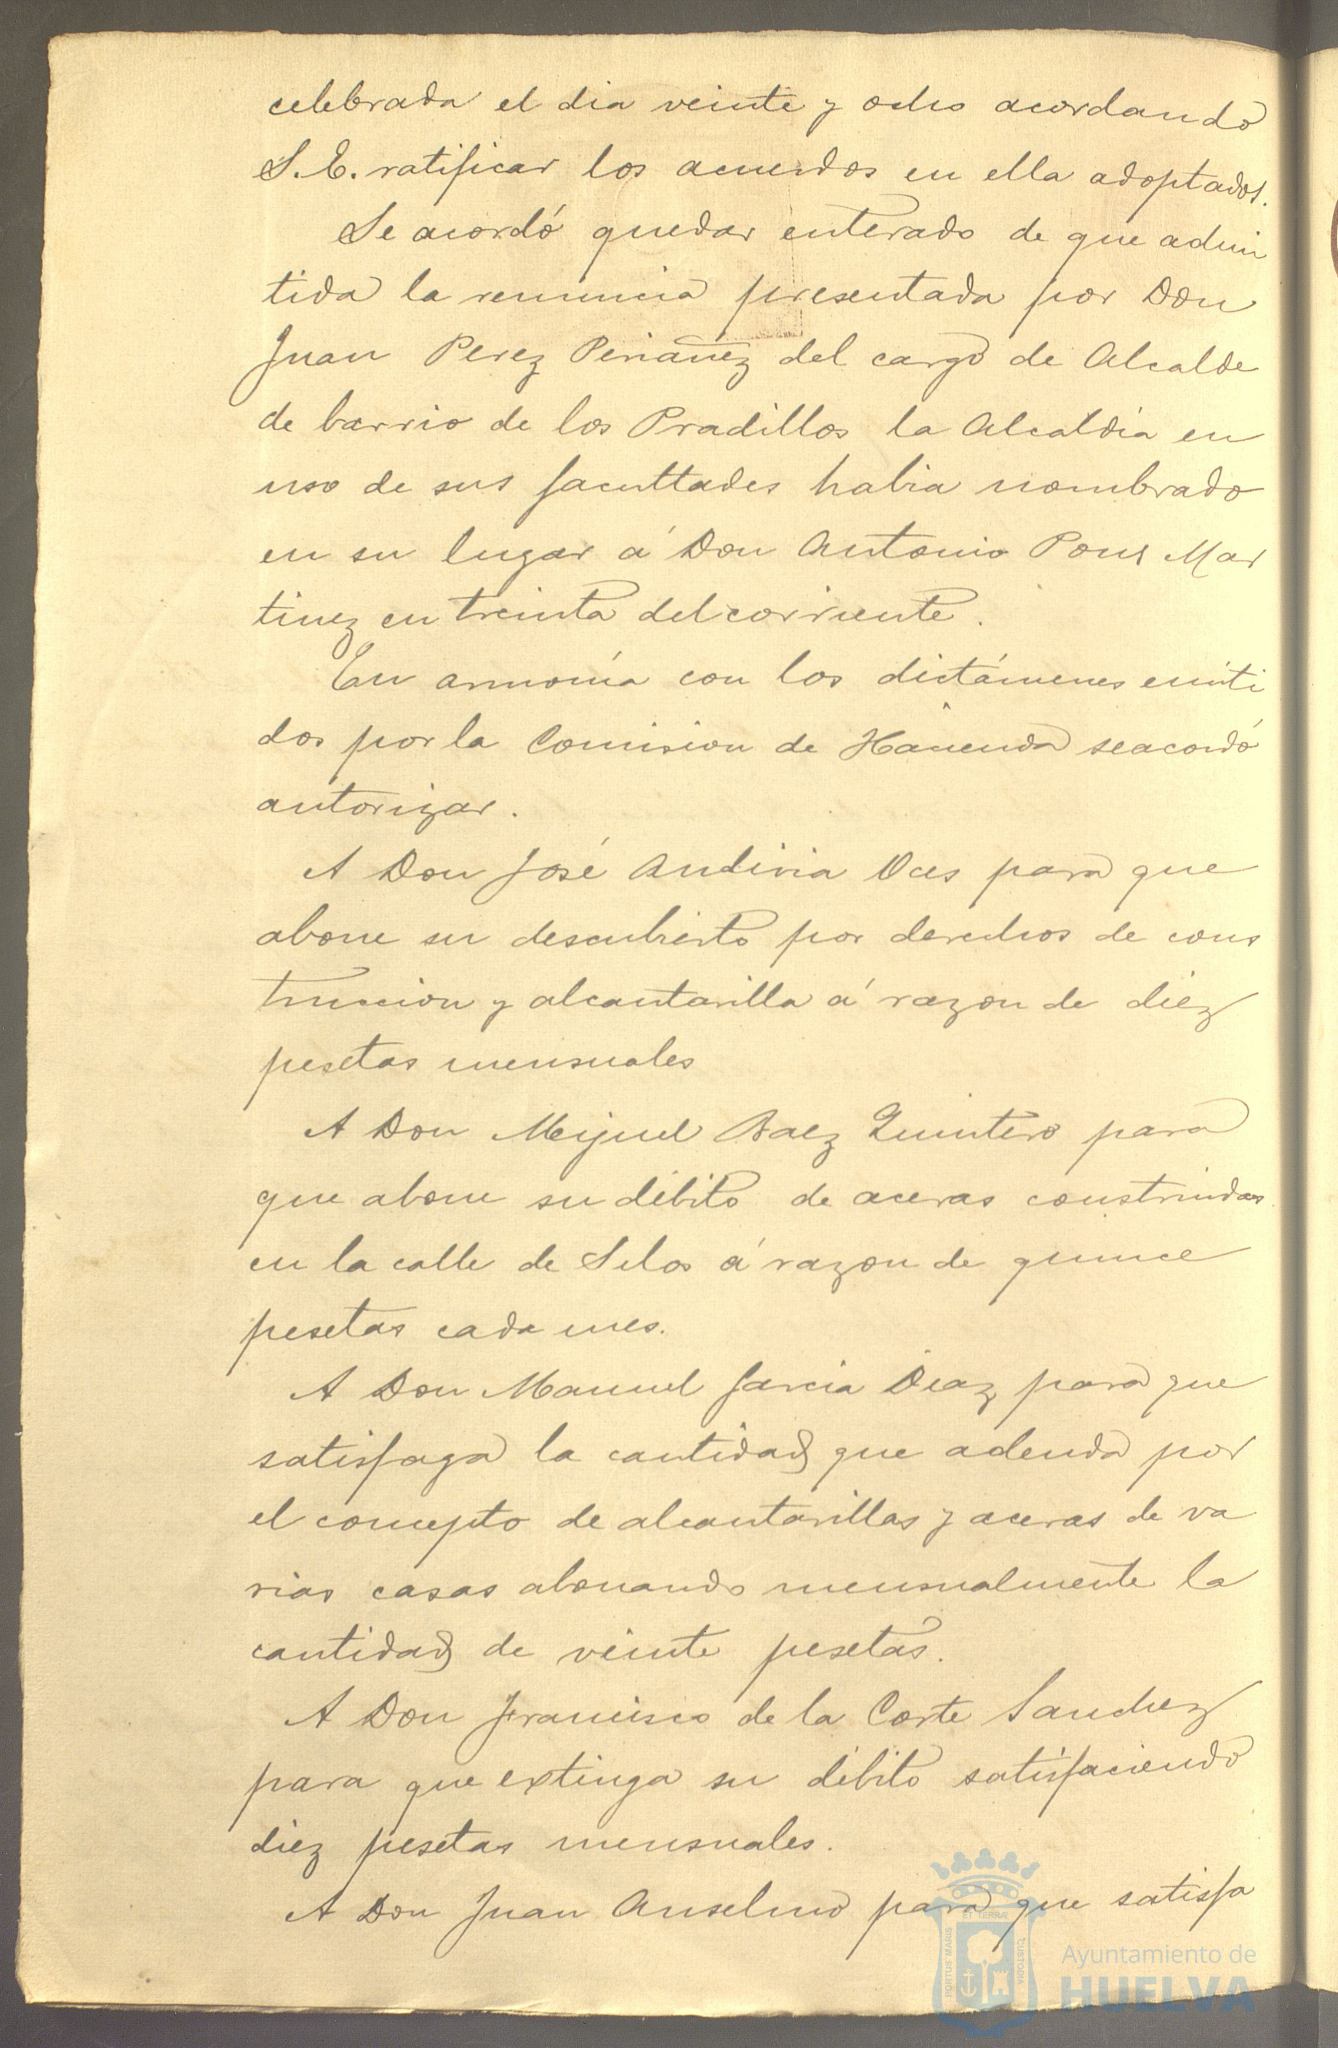 celebrada el dia veinte y ocho acordando
S.E. ratificar los acuerdos en ella adoptados.
Se acordó quedar enterado de que admi
tida la renuncia presentada por Don
Juan Perez Periañez del cargo de Alcalde
de barrio de los Pradillos la Alcaldia en
uso de sus facultades habia nombrado
en su lugar á Don Antonio Pons Mar
tinez en treinta del corriente.
En armonía con los dictámenes emiti
dos por la Comision de Hacienda se acordó
autorizar.
A Don José Andivia Oces para que
abone su descubierto por derechos de cons
truccion y alcantarilla á razon de diez
pesetas mensuales
A Don Miguel Baez Quintero para
que abone su débito de aceras construidas
en la calle de Silos á razon de quince
pesetas cada mes.
A Don Manuel Garcia Diaz para que
satisfaga la cantidad que adeuda por
el concepto de alcantarillas y aceras de va
rias casas abonando mensualmente la
cantidad de veinte pesetas.
A Don Francisco de la Corte Sanchez
para que extinga su débito satisfaciendo
diez pesetas mensuales.
A Don Juan Anselmo para que satisfa
PORTUS MARIS ET TERRAE CUSTODIA
Ayuntamiento de
HUELVA